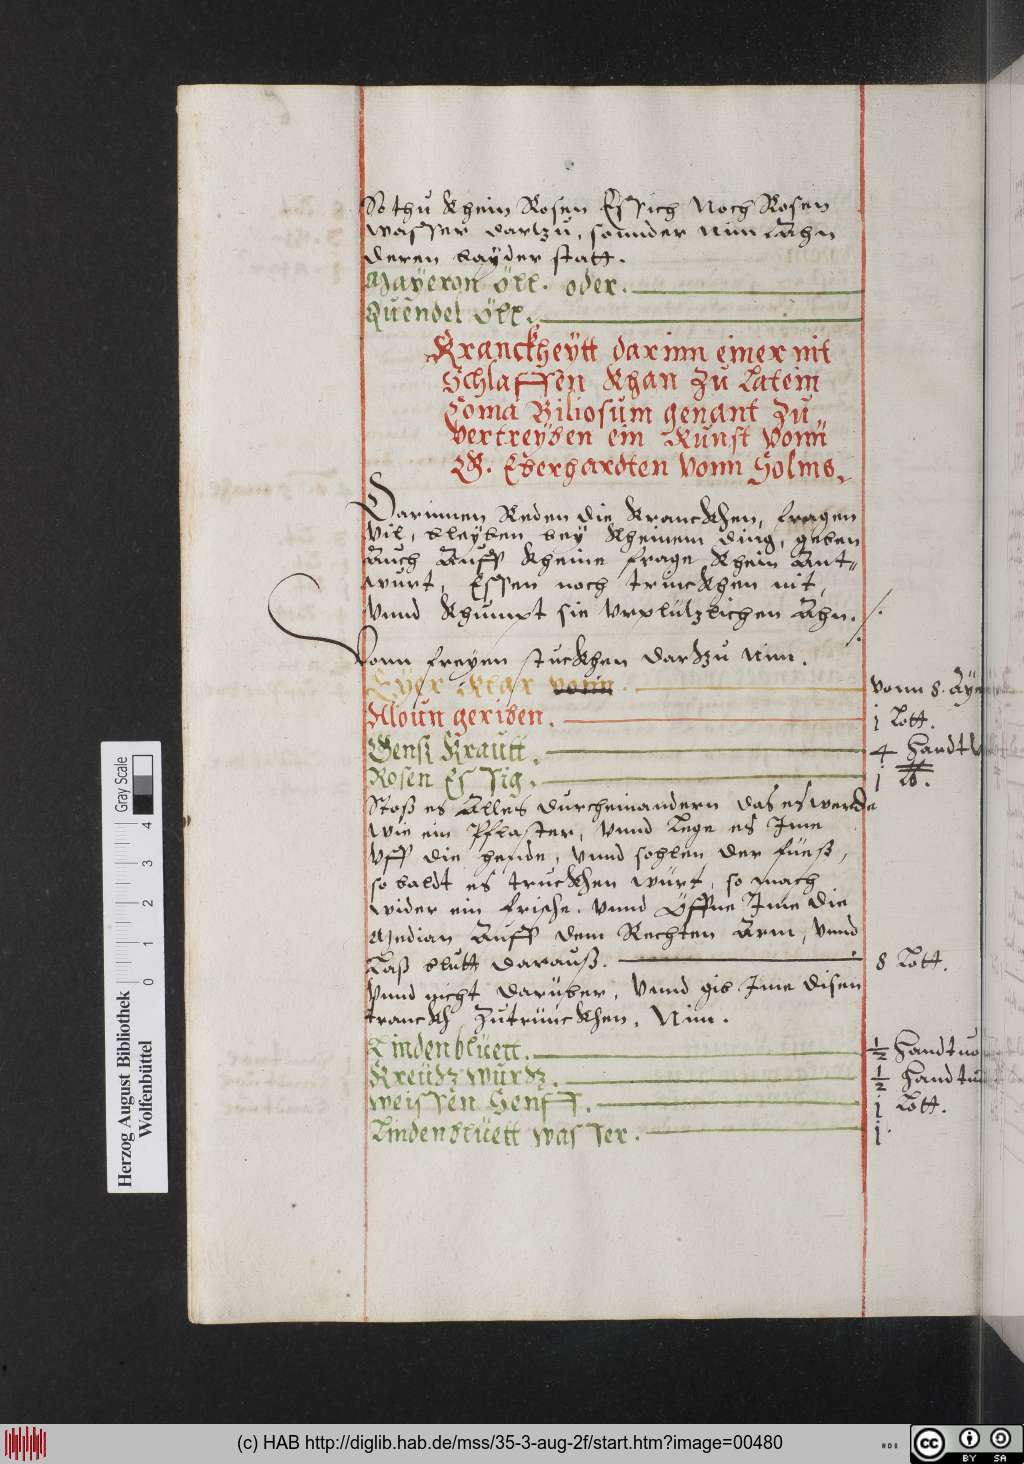 So thu Khein Rosen Essich Noch Rosen
Wasser dartzu, sonnder Nim Ahn
deren bayder statt.
Mayeron öll. oder.
Quendel öll.
Kranckheÿtt darinn einer nit
Schlaffen Khan zu Latein
Coma Biliosum genant zu
vertreÿben ein Kunst Vonn
G. Eberhardten Vonn Solms.
Darinnen Reden die Kranckhen, fragen
Vil, bleyben bey Kheinem ding, geben
Auch Auff Kheine frage Khein Ant-
wurt, Essen noch trinckhen nit,
Vnnd Khumpt sie Vrplützlichen Ahn.
Vonn freyen stuckhen dartzu Nim.
Eyer Klar vonn. Vonn 8. Aÿ
Aloun geriben. j Lott.
Gensz Krautt. 4 Handt
Rosen Essig. j lb.
Stoß es Alles durcheinandern das es werde
Wie ein Pflaster, Vnnd Lege es Ime
Vff die hende, Vnnd sohlen der füeß,
so baldt es truckhen würt, so mach
wider ein frische. Vnnd Öffne Ime die
Median Auff dem Rechten Arm, Vnnd
Laß blutt darauß. 8 Lott.
Vnnd nicht darüber, Vnnd gib Ime disen
tranckh zutrinckhen, Nim.
Lindenblüett. ½ Handtuo
Kreützwurtz. ½ Handtu
Weissen Senff. j Lott.
Lindenblüett wasser. j
Herzog August Bibliothek
Wolfenbüttel
Gray Scale
0 1 2 3 4
(c) HAB http://diglib.hab.de/mss/35-3-aug-2f/start.htm?image=00480
cc BY SA